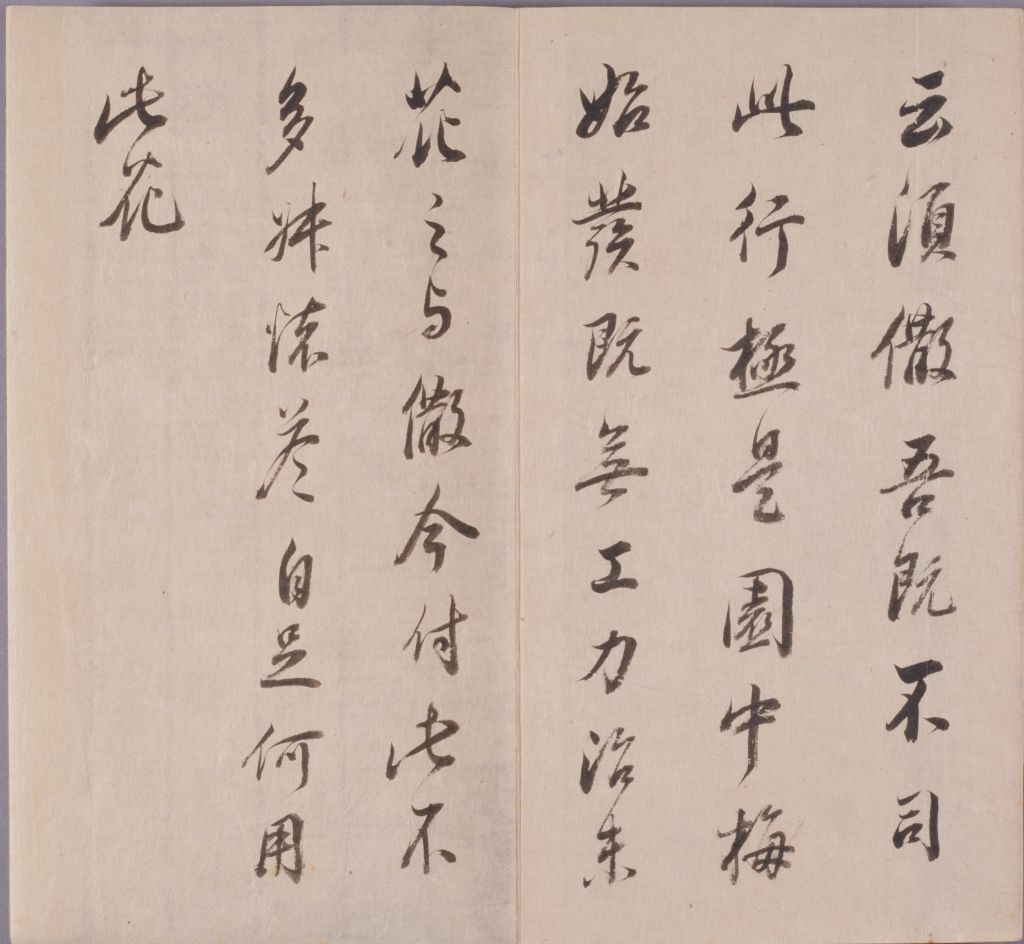 云須儆吾既不司
此行極是園中梅
始發既無工力治未
花之与儆今付此不
多妹懷差自足何用
此花